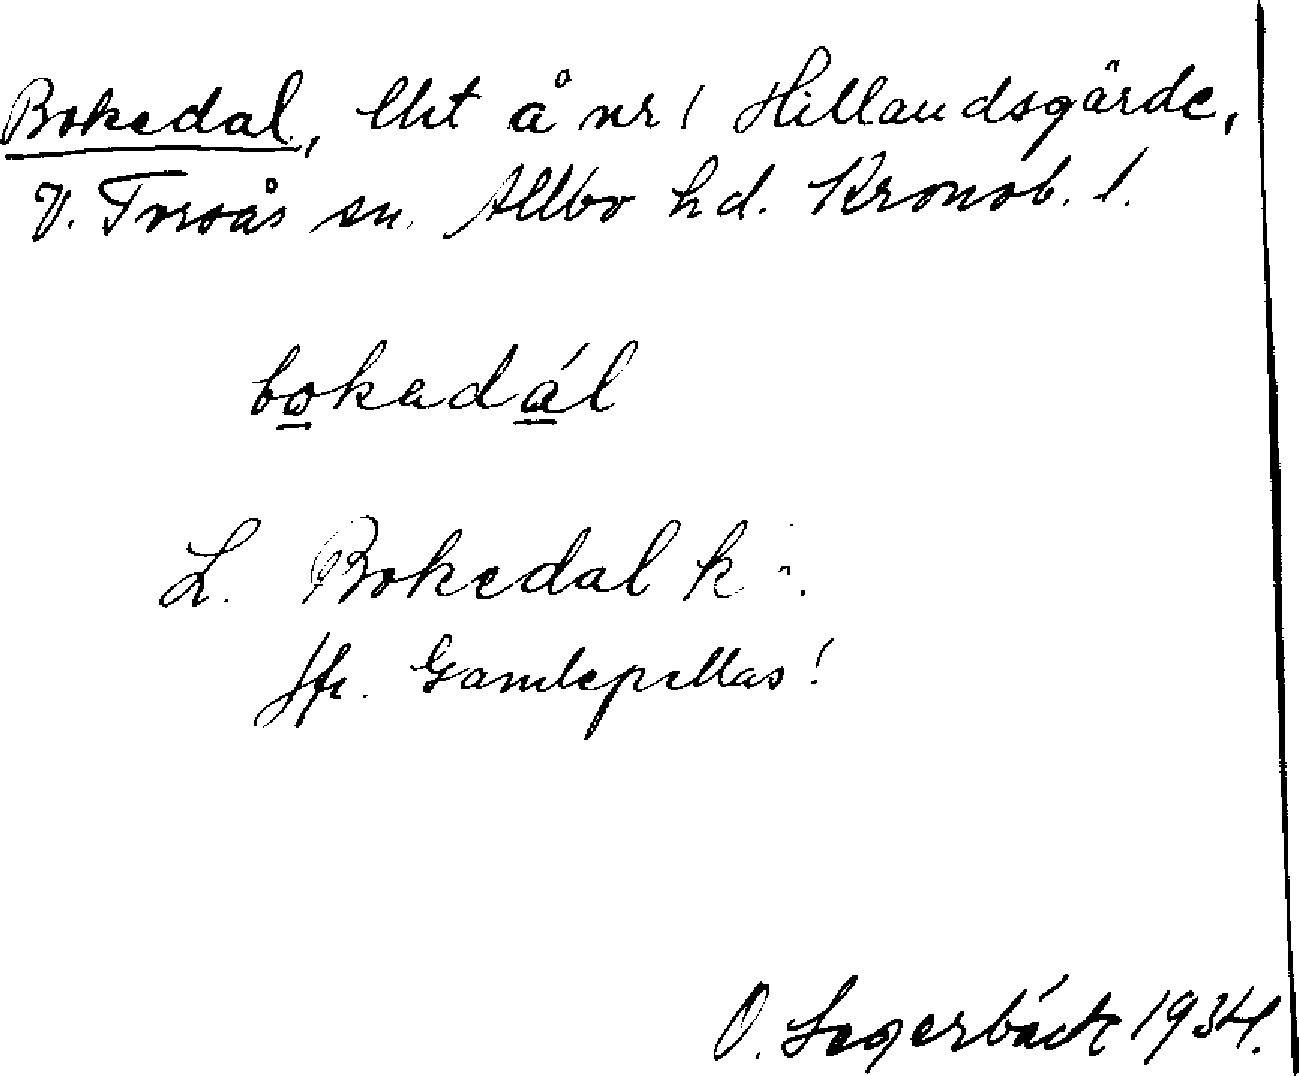 Bokedal, lht å nr 1 Hillandsgärde,
V. Torsås sn. Allbo hd. Kronob. l.
bokadál
L. Bokedal k
Jfr. Gamlepellas!
O. Segerbäck 1934.